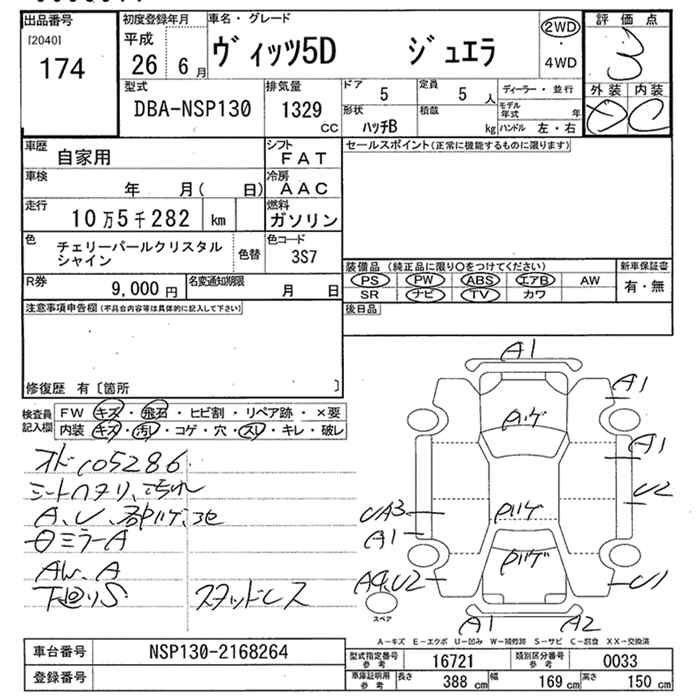 出品番号
[2040]
174
初度登録年月
平成
26年6月
車名・グレード
ヴィッツ5D ジュエラ
2WD
4WD
評価点
3
外装 内装
D C
型式
DBA-NSP130
排気量
1329
CC
ドア
5
定員
5人
ディーラー・並行
形状
ハッチB
積載
kg
モデル年式
年
ハンドル 左・右
車歴
自家用
シフト
FAT
車検
年 月( 日)
冷房
AAC
走行
10万5千282 km
燃料
ガソリン
色
チェリーパールクリスタル
シャイン
色替
色コード
3S7
R券
9,000円
名変通知期限
月 日
セールスポイント(正常に機能するものに限ります)
装備品 (純正品に限り〇をつけてください)
PS PW ABS エアB AW
SR ナビ TV カワ
新車保証書
有・無
後日品
注意事項申告欄(不具合内容等は具体的に記入して下さい)
修復歴 有〔箇所 〕
検査員
記入欄
FW キズ・飛石・ヒビ割・リペア跡・×要
内装 キズ・汚レ・コゲ・穴・スレ・キレ・破レ
オド105286
シートヘタリ、汚れ
A、U、
ミラーA
AW、A
下廻りS スタッドレス
A1
A1
ハゲ
A1
U2
UA3
A1
ハゲ
ハゲ
A4,U2
U1
スペア
A1
A2
A-キズ E-エクボ U-凹み W-補修跡 S-サビ C-腐食 XX-交換済
車台番号
NSP130-2168264
登録番号
型式指定番号
参考
16721
類別区分番号
参考
0033
車庫証明用
参考
長さ
388 cm
幅
169 cm
高さ
150 cm